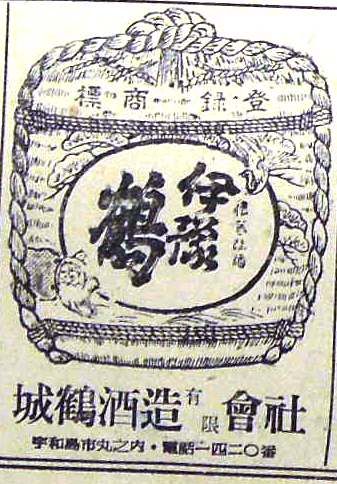 登録商標
伊豫
鶴
城鶴酒造有限會社
宇和島市丸之内・電話一四二〇番